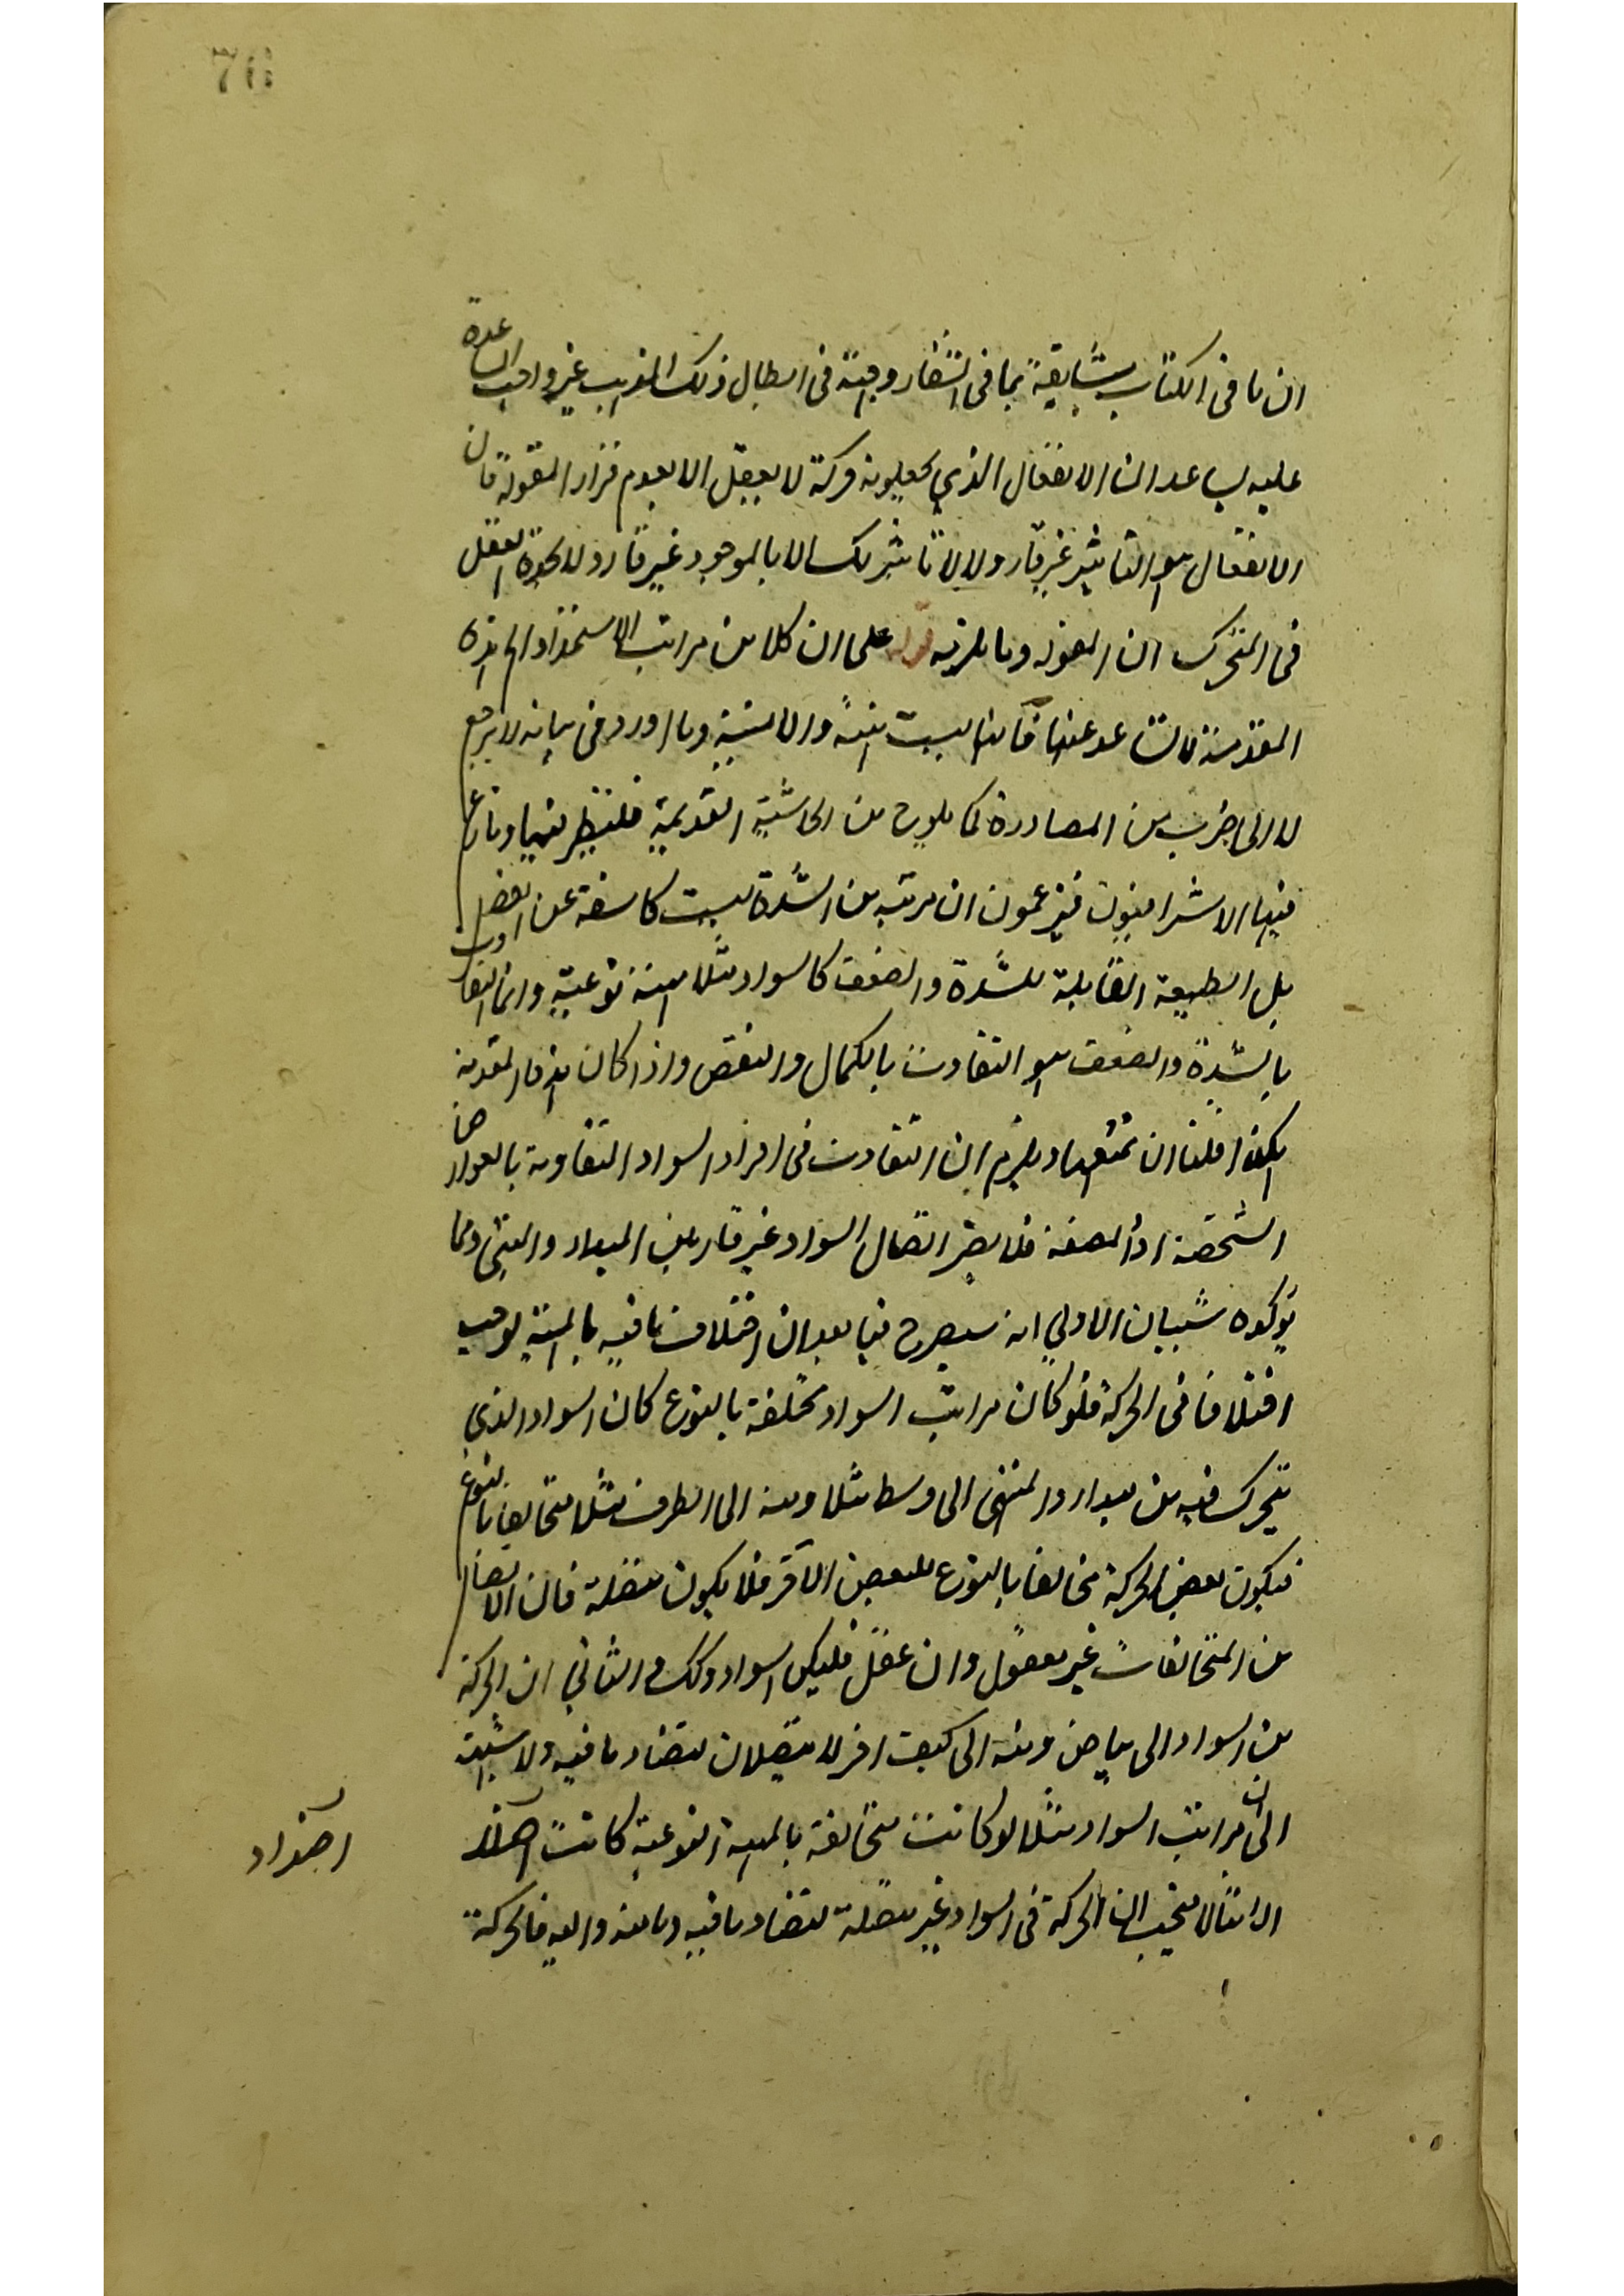 ان ما فى الكتاب مشايعة بما فى الشفاء وجيّة فى ابطال ذلك المذهب غير واجب المساعدة
عليه يساعد ان الانفعال الذي يجعلونه حركة لا يعقل الا بعدم قرار المقولة فان
الانفعال هو التأثير غير قار ولا تأثير لك الا بالموجود غير قار ولا يجوز العقل
فى المتحرك ان المقولة وما يلزمه قوله على ان كلا من مراتب الاستعداد الخ هذه
المقدمة لا تساعد عندنا فانها ليست بينة ولا مبينة وما اورد فى بيانه لا يرجع
الا الى ضرب من المصادرة كما يلوح من الحاشية القديمة فلينظر فيها ونازع
فيها الاشراقيون فيزعمون ان مرتبة من الشدة ليست كاشفة عن الفصل
بل الطبيعة القابلة للشدة والضعف كالسواد مثلا مهية نوعية وانما التفاوت
بالشدة والضعف هو التفاوت بالكمال والنقص واذا كان هذه المقدمة
هكذا فلنا ان نمنعها ويلزم ان التفاوت فى افراد السواد المتفاوتة بالعوارض
الشخصية او المصنفة فلا يضر اتصال السواد غير قار بين المبدء والمنتهى ومما
يؤكده شيئان الاول انه سيصرح فيما بعد ان اختلاف ما فيه بالمهية يوجب
اختلافا فى الحركة فلو كان مراتب السواد مختلفة بالنوع كان السواد الذي
يتحرك فيه من مبدء والمنتهى الى وسط مثلا ومنه الى الطرف مثلا متخالفا بالنوع
فيكون بعض الحركة مخالفا بالنوع للبعض الآخر فلا يكون متصلة فان الاتصال
من المتخالفات غير معقول وان عقل فليكن السواد كذلك والثاني ان الحركة
من السواد الى بياض ومنه الى كيف اخر لا يتصلان لتضاد ما فيه ولا شبهة
الى ان مراتب السواد مثلا لو كانت متخالفة بالمهية النوعية كانت اضداد
الا مثالا فيجب ان الحركة فى السواد غير متصلة لتضاد ما فيه وما منه واليه فالحركة
اضداد